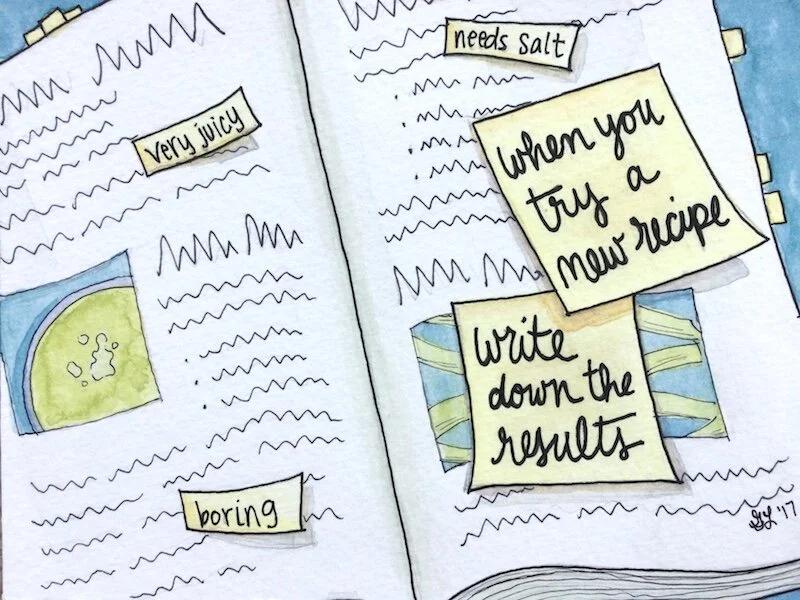 very juicy
boring
needs salt
when you
try a
new recipe
write
down the
results